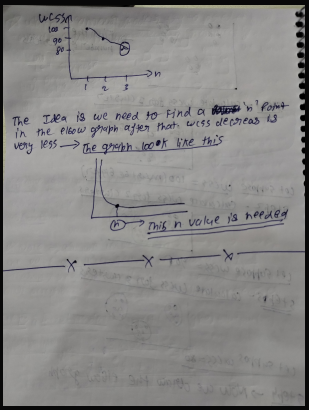 WCSS
100
90
80
1 2 3 n
The Idea is we need to Find a 'n' Point
in the elbow graph after that wcss decreas is
very less → The graph look like this
n → This n value is needed